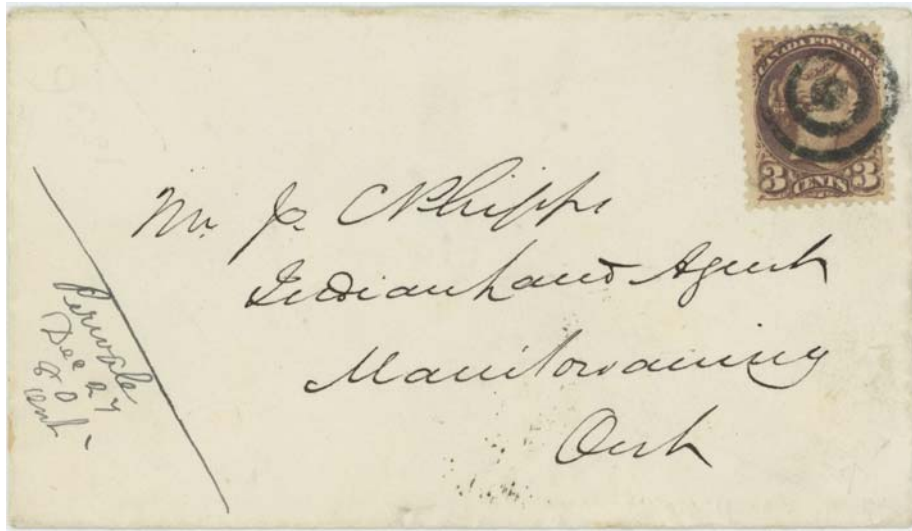 CANADA POSTAGE
3 CENTS 3
Mr. J. C Phipps
Indian Land Agent
Manitowaning
Ont
Dec 27
80